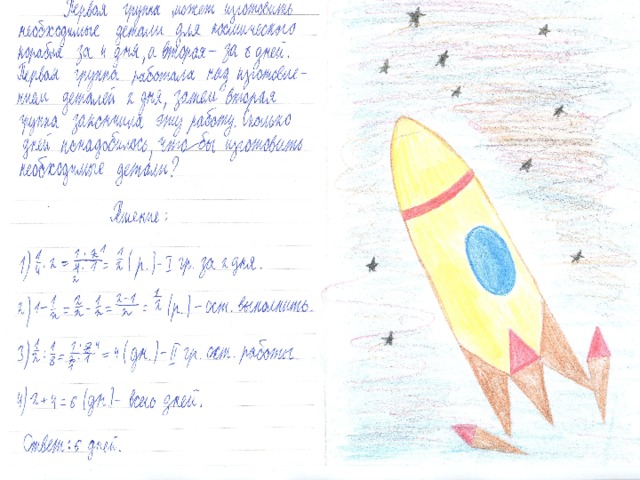 Первая группа может изготовить
необходимые детали для космического
корабля за 4 дня, а вторая – за 8 дней.
Первая группа работала над изготовле-
нием деталей 2 дня, затем вторая
группа закончила эту работу. Сколько
дней понадобилось, что бы изготовить
необходимые детали?
Решение:
1) 1/4 · 2 = 1·2/4·1 = 1/2 (р.) – I гр. за 2 дня.
2) 1 – 1/2 = 2/2 – 1/2 = 2-1/2 = 1/2 (р.) – ост. выполнить.
3) 1/2 : 1/8 = 1·8/2·1 = 4 (дн.) – II гр. ост. работы
4) 2 + 4 = 6 (дн.) – всего дней.
Ответ: 6 дней.